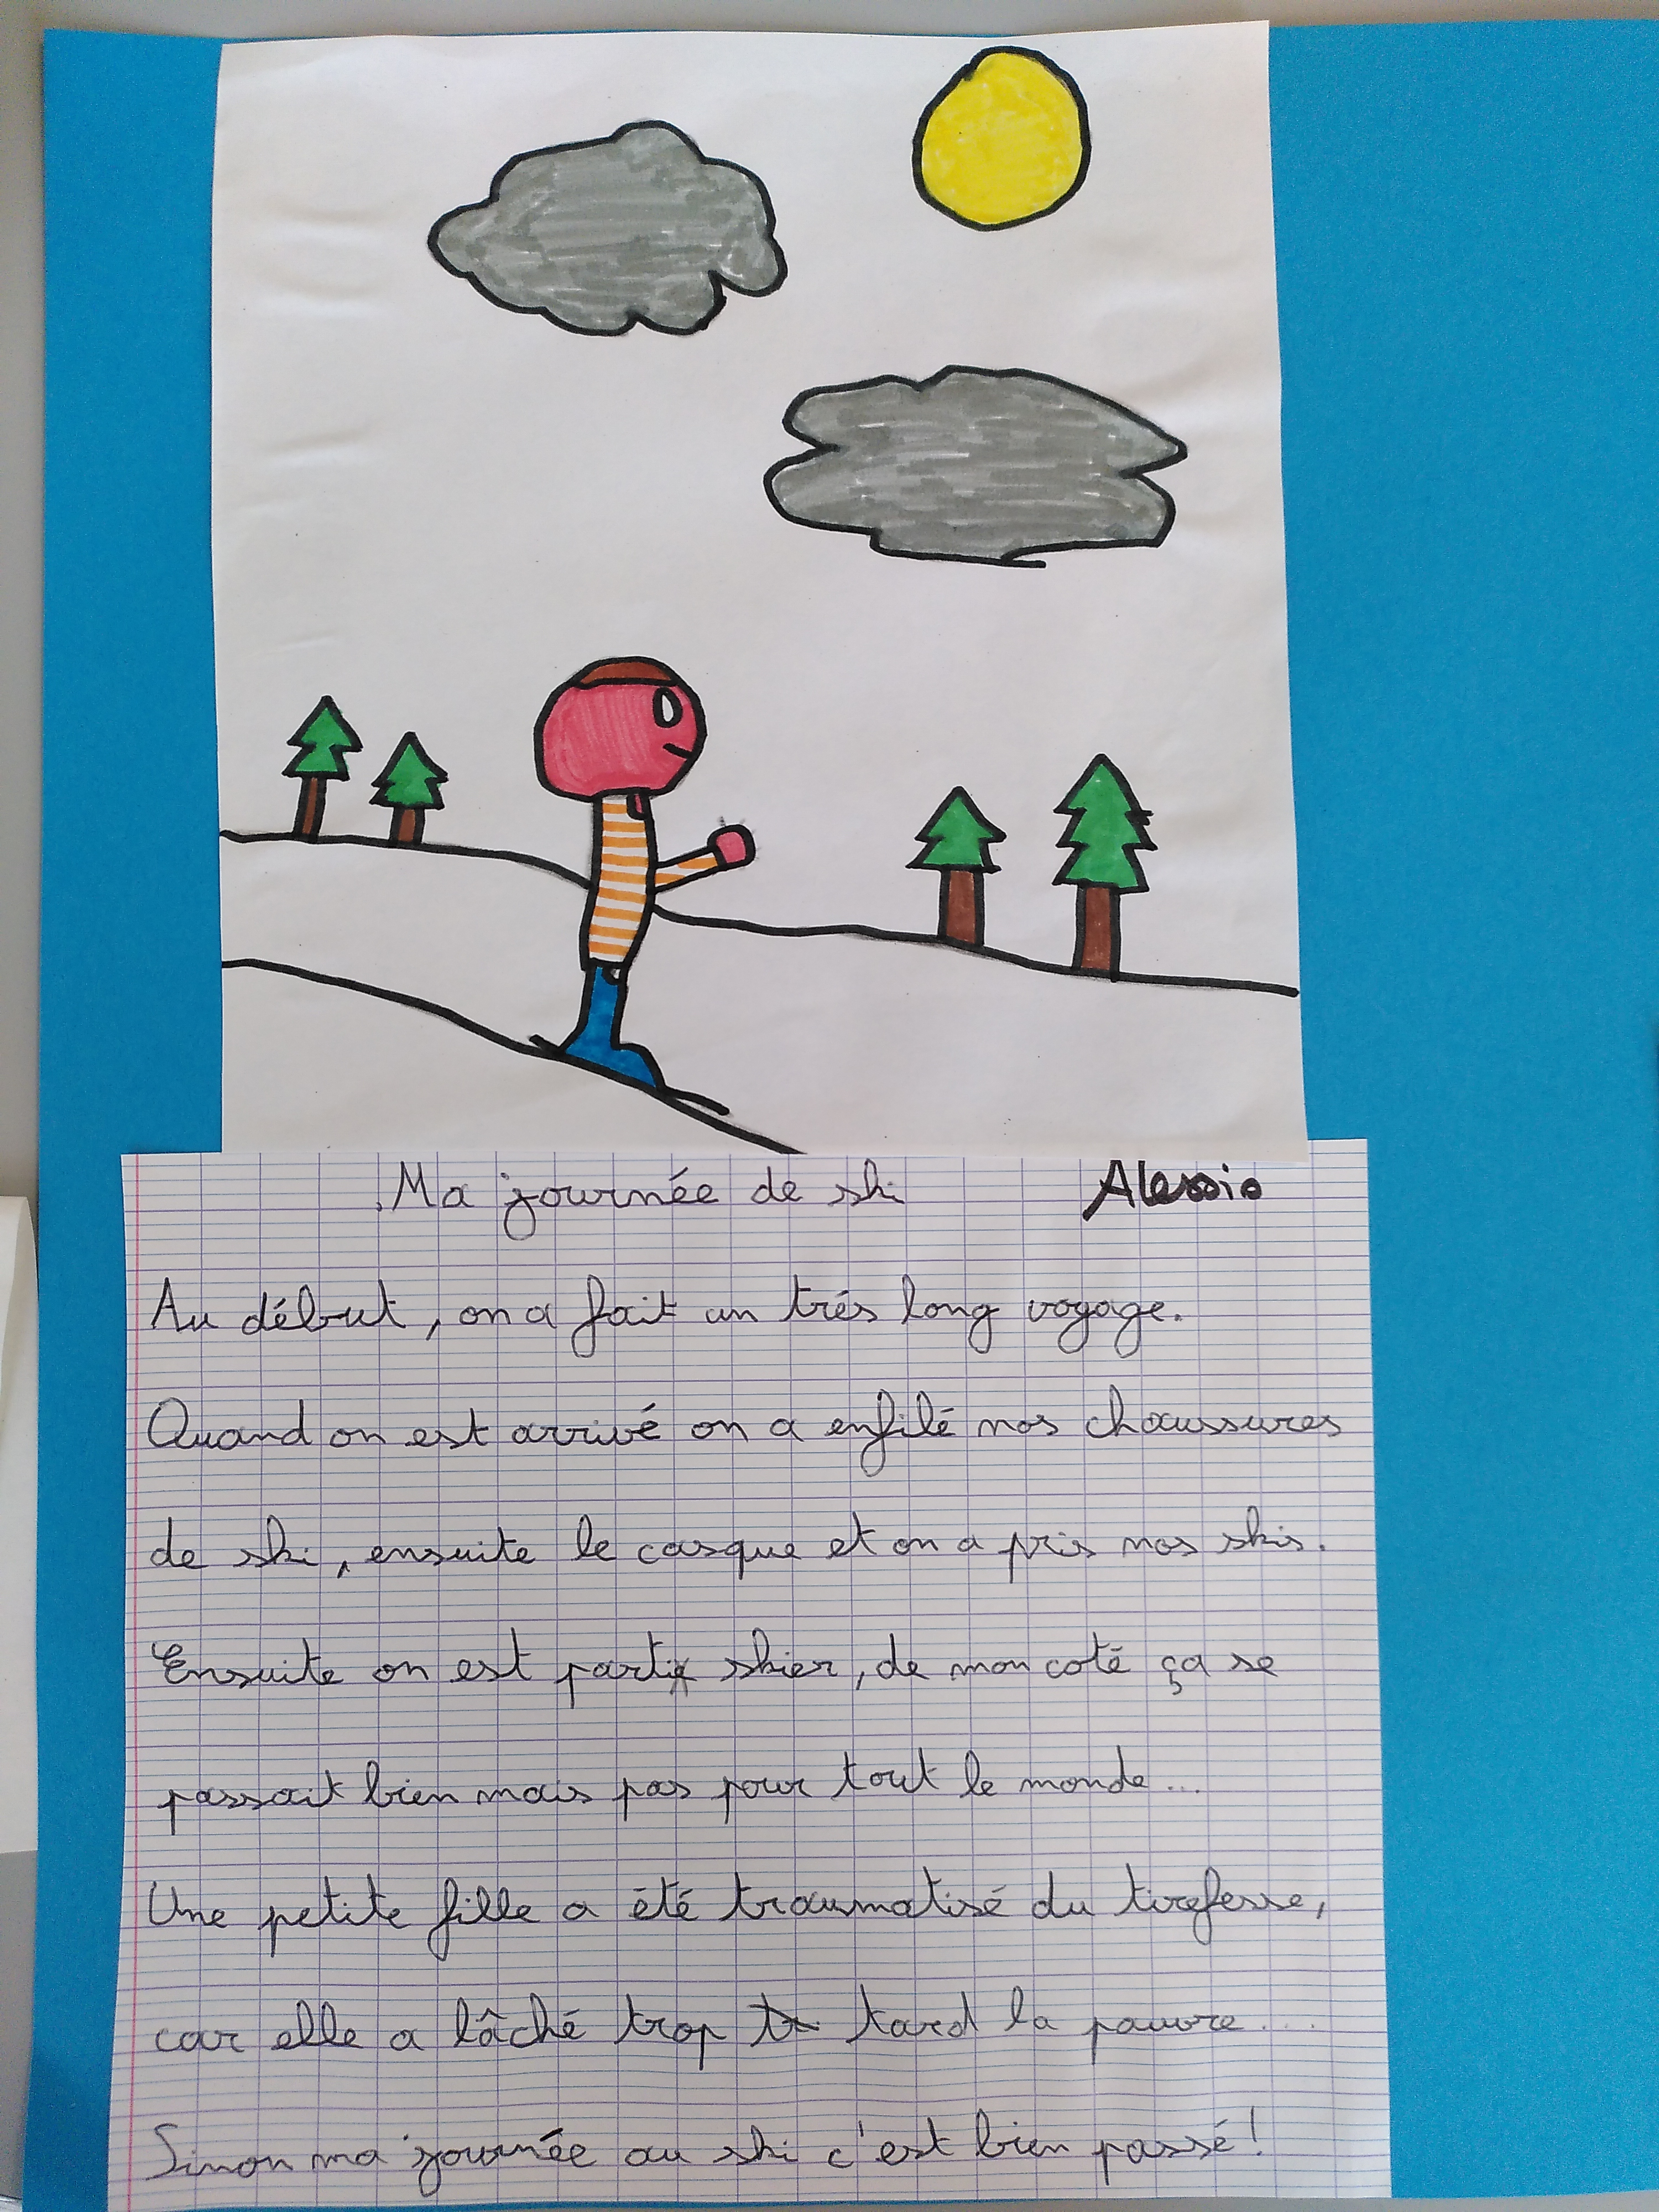 Ma journée de ski Alessio
Au début, on a fait un trés long voyage.
Quand on est arrivé on a enfilé nos chaussures
de ski, ensuite le casque et on a pris nos skis.
Ensuite on est parti skier, de mon coté ça se
passait bien mais pas pour tout le monde...
Une petite fille a été traumatisé du tirefesse,
car elle a lâché trop tard la pauvre...
Sinon ma journée au ski c'est bien passé!